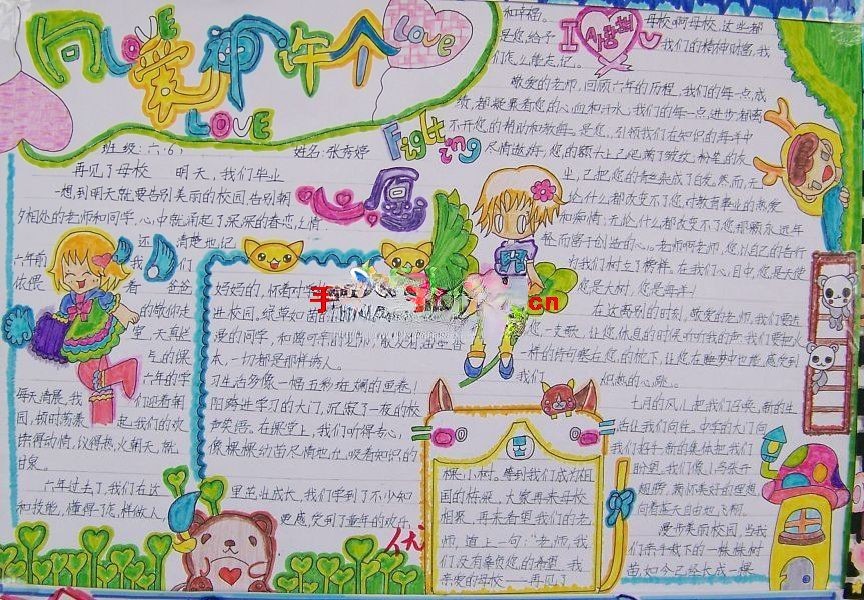 向爱神许个愿
LOVE
LOVE
LOVE
Fighting
I
사랑해
U
班级:六(6)
姓名:张秀婷
再见了母校
明天,我们毕业
一想到明天就要告别美丽的校园,告别朝
夕相处的老师和同学,心中就涌起了深深的眷恋之情
还
清楚地记
六年前
我
们
依偎
着
爸爸
好奇的,怀着
的歌你走
进校园,绿草如茵的
室,天真烂
漫的同学,和蔼可亲的老师
与的课
本,一切都是那样诱人。
六年的学
习生活多像一幅五彩斑斓的画卷!
每天清晨,我
们迎着朝
阳跨进学习的大门,沉寂了一夜的校
园,顿时荡漾
起我们的欢
声笑语。在课堂上,我们听得专心,
乐得动情,议得热火朝天,就
像棵棵幼苗尽情地吮吸着知识的
甘泉。
六年过去了,我们在这
里茁壮成长,我们学到了不少知
和技能,懂得了怎样做人
更感受到了童年的欢乐
和幸福。
母校啊母校,这些都
是您给予
我们的精神财富,我
们怎么能忘记。
敬爱的老师,回顾六年的历程,我们的每一点成
绩,都凝聚着您的心血和汗水,我们的每一点进步,都离
不开您的帮助和教诲。是您,引领我们在知识的海洋中
尽情遨游,您的额头上已爬满了皱纹,粉笔的灰
尘,已把您的青丝染成了白发。然而,无
论什么都改变不了您对教育事业的热爱
和痴情;无论什么都改变不了您那颗永远年
轻而富于创造的心。老师啊老师,您以自己的言行
为我们树立了榜样。在我们心目中,您是天使
您是大树,您是海洋!
在这离别的时刻,敬爱的老师,我们要送
您一支歌,让您休息的时候听听我的声,我们要把火
一样的诗句塞在您的枕下,让您在睡梦中也能感受到
我们
炽热的心跳。
七月的风儿把我们召唤,新的生
活让我们向往。中学的大门向
我们招手,新的集体把我们
盼望。我们像小鸟张开
翅膀,满怀美好的理想
向着蓝天自由地飞翔。
漫步美丽校园,当我
们亲手栽下的一株株树
苗,如今已经长成一棵
棵小树。等到我们成为祖
国的栋梁,大家再来母校
相聚,再来看望我们的老
师,道上一句:“老师,我
们没有辜负您的希望。我
亲爱的母校——再见了
手
cn